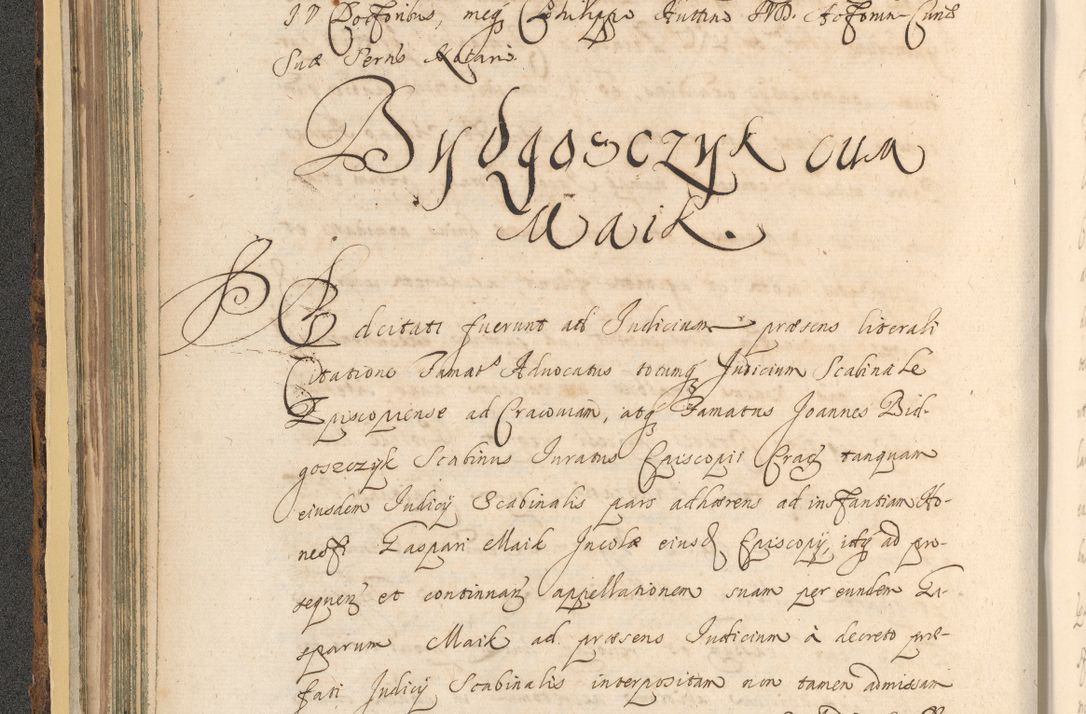 Doctoribus, meq Philippo
Suæ Perno Notario
Bydgosczyk cum
Maik.
Adcitati fuerunt ad Judicium præsens literali
Citatione Famats Advocatus totumq Judicium Scabinale
Episcopiense ad Cracoviam, atq Famatus Joannes Bid-
goszczyk Scabinus Juratus Episcopii Crac tanquam
eiusdem Judicij Scabinalis pars adhærens ad instantiam Ho-
nesti Gaspari Maik Incolæ eiusd Episcopij itq ad pro-
sequen et continuan appellationem suam per eundem Ga-
sparum Maik ad præsens Judicium à decreto præ-
fati Judicij Scabinalis interpositam non tamen admissam